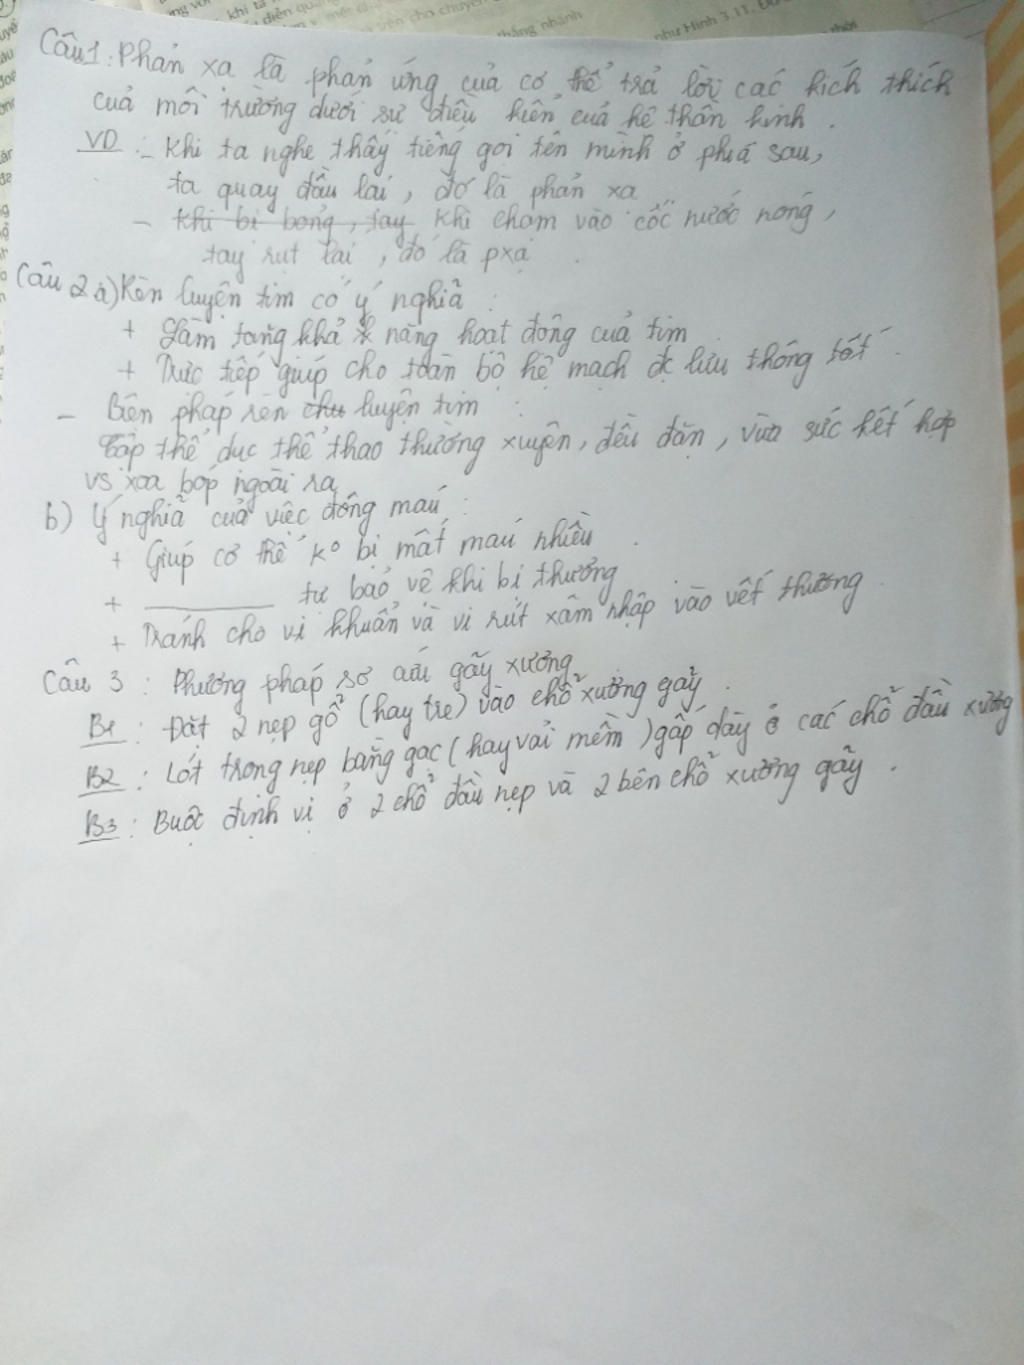 Câu 1: Phản xạ là phản ứng của cơ thể trả lời các kích thích
của môi trường dưới sự điều kiển của hệ thần kinh.
VD: - Khi ta nghe thấy tiếng gọi tên mình ở phiá sau,
ta quay đầu lại, đó là phản xạ
- Khi bị bỏng, tay Khi chạm vào cốc nước nóng,
tay rụt lại, đó là pxạ.
Câu 2 a) Rèn luyện tim có ý nghiã:
+ Làm tăng khả năng hoạt động của tim
+ Trực tiếp giúp cho toàn bộ hệ mạch đc lưu thông tốt.
- Biện pháp rèn luyện tim:
Tập thể dục thể thao thường xuyên, đều đặn, vừa sức kết hợp
vs xoa bóp ngoài ra
b) Ý nghiã của việc đông máu:
+ Giúp cơ thể k° bị mất máu nhiều.
+ ________ tự bảo vệ khi bị thương
+ Tránh cho vi khuẩn và vi rút xâm nhập vào vết thương.
Câu 3: Phương pháp sơ cứu gãy xương
B1: Đặt 2 nẹp gổ (hay tre) vào chổ xương gảy.
B2: Lót trong nẹp bằng gạc (hay vải mềm) gấp dày ở các chổ đầu xương
B3: Buộc định vị ở 2 chổ đầu nẹp và 2 bên chổ xương gãy.